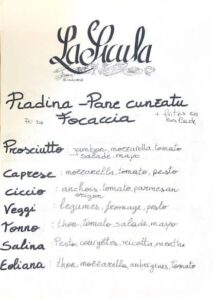 LaSicula
Piadina - Pane cunzatu
Focaccia
+ frites ou salade
Prosciutto : jambon, mozzarella, tomato
salade, mayo
Caprese : mozzarella, tomato, pesto
Ciccio : anchois, tomato, parmesan
origan
Veggi : legumes, fromage, pesto
Tonno : thon, tomato, salade, mayo
Salina : Pesto, courgettes, ricotta menthe
Eoliana : thon, mozzarella aubergines, tomato